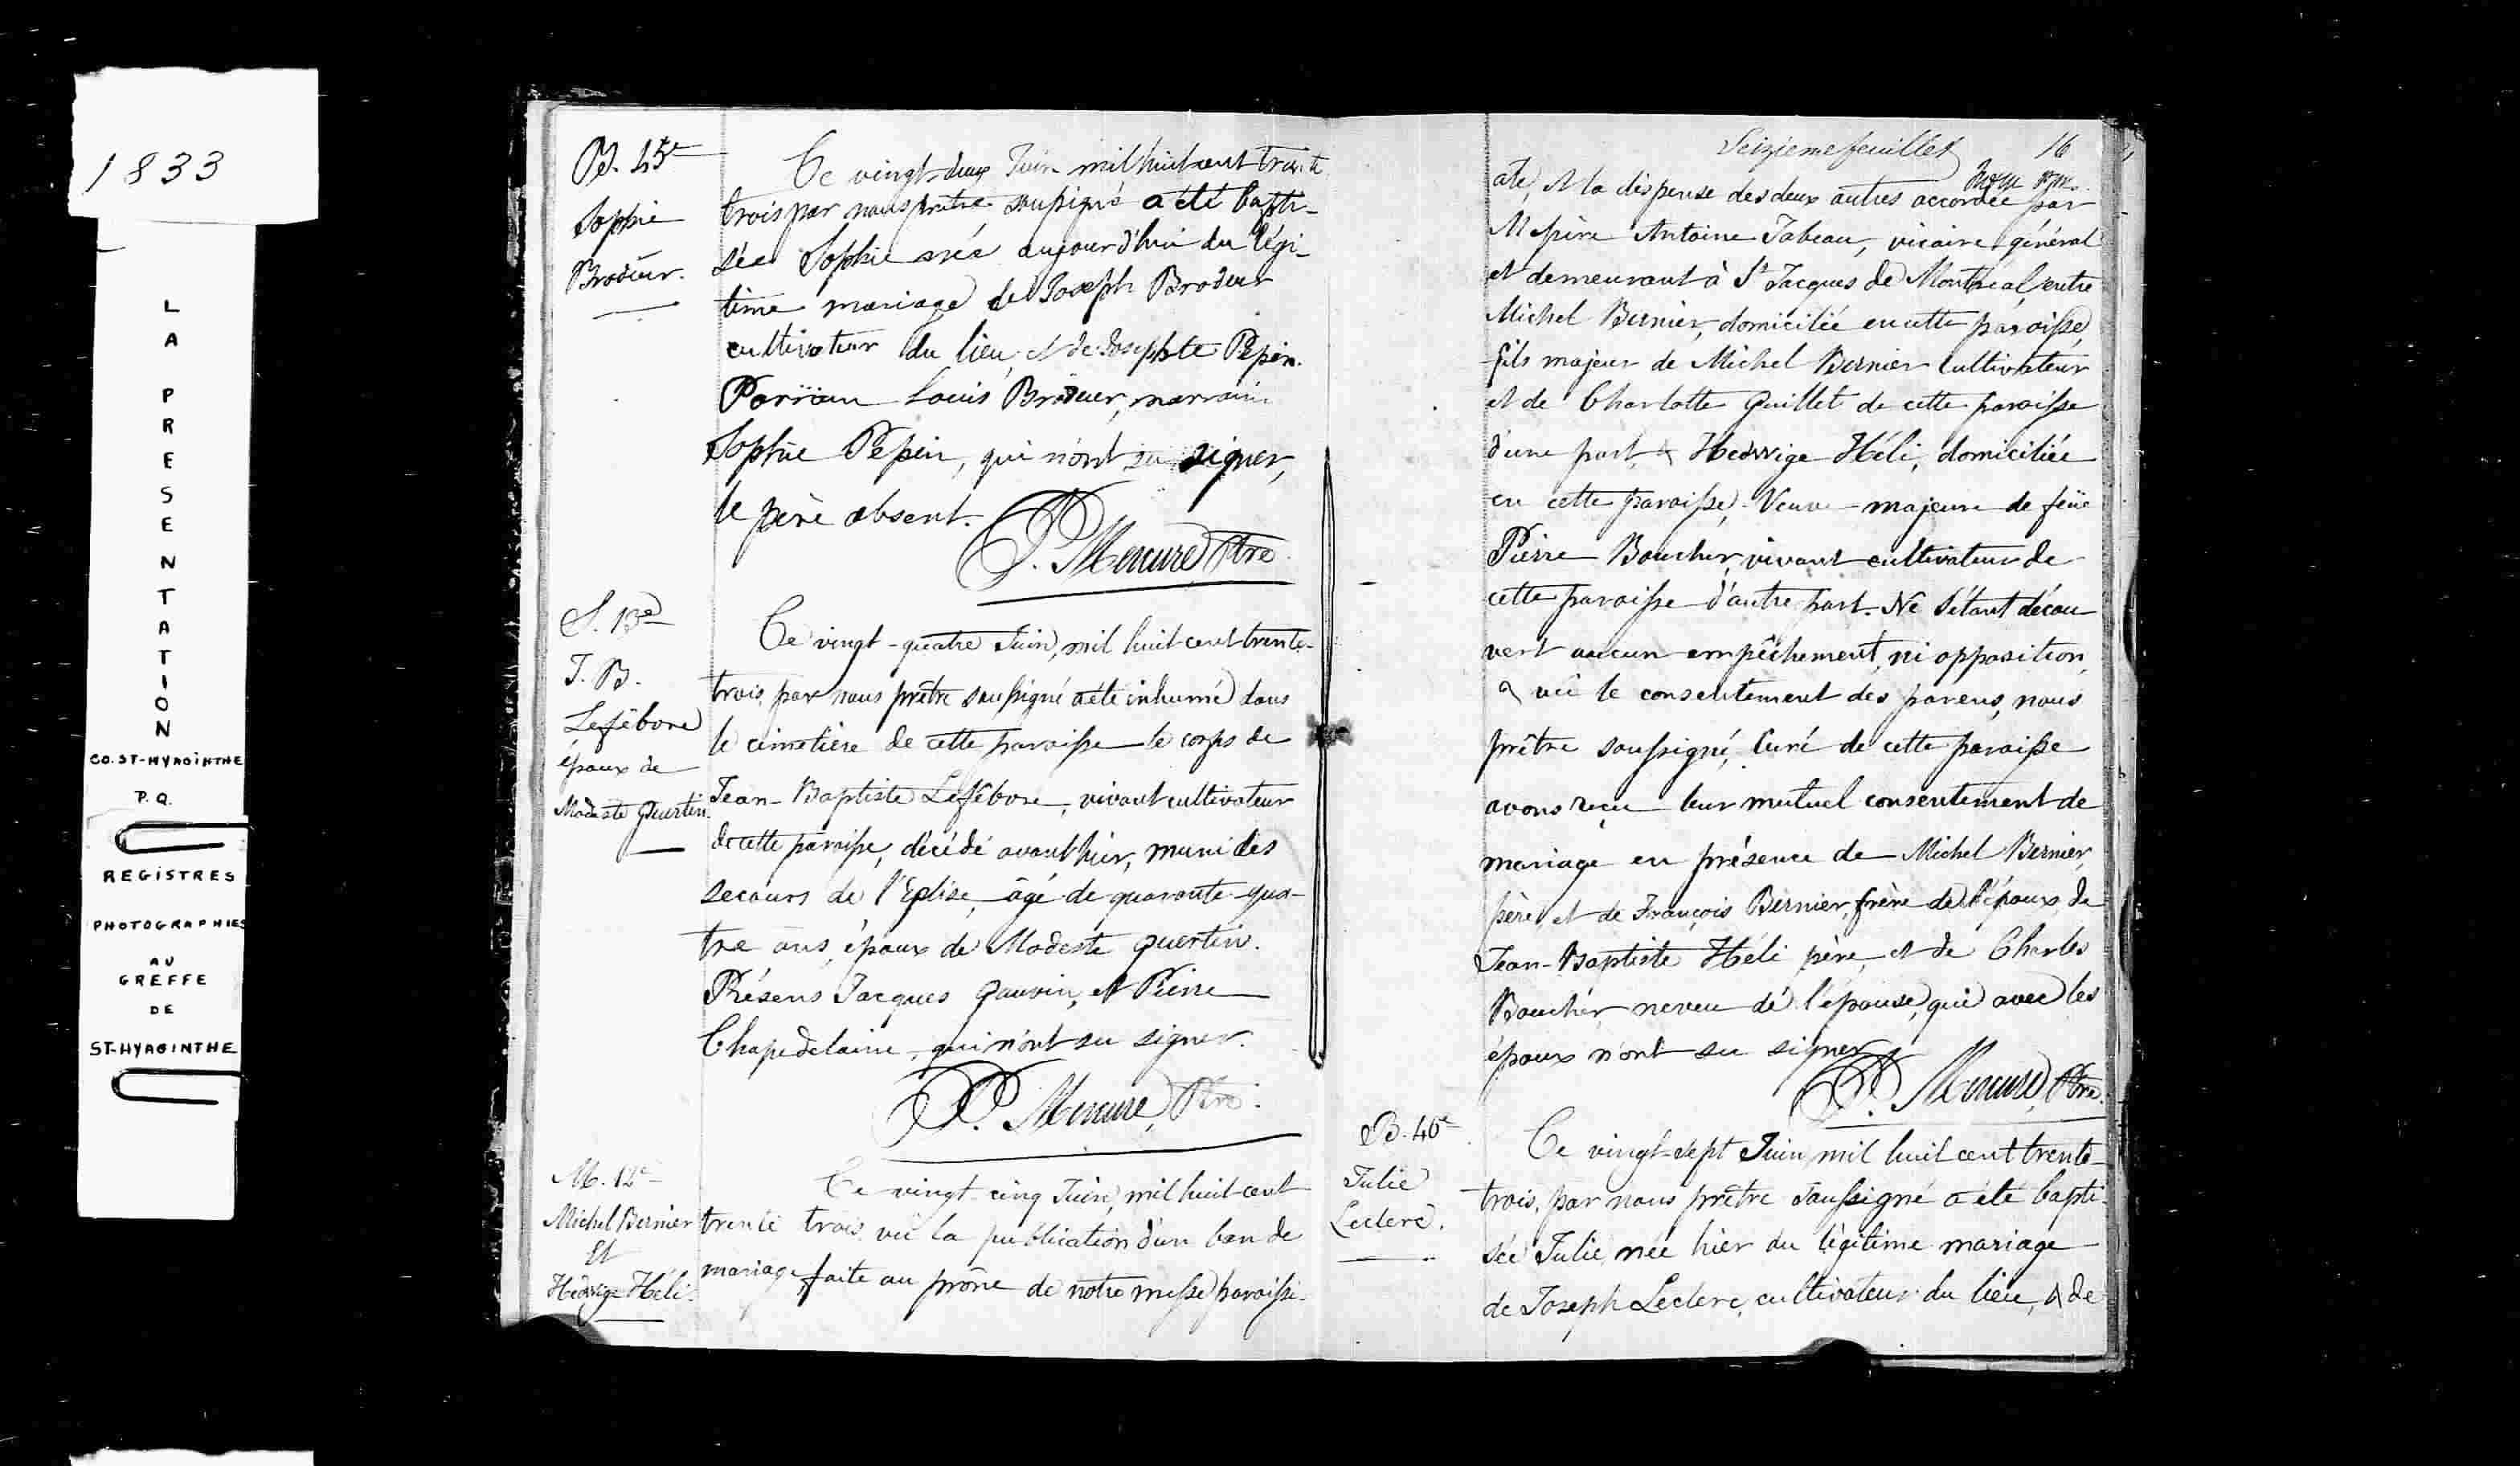 1833
LA PRESENTATION
CO. ST-HYACINTHE
P.Q.
REGISTRES
PHOTOGRAPHIES
AU
GREFFE
DE
ST-HYACINTHE
B. 45e
Sophie
Brodeur.
Ce vingt-deux Juin mil huit cent trente
trois par nous prêtre soussigné a été bapti-
sée Sophie née aujourd'hui du légi-
time mariage de Joseph Brodeur
cultivateur du lieu, et de Josephte Pepin.
Parrain Louis Brodeur, marraine
Sophie Pepin, qui n'ont su signer,
le père absent.
P. Mercure Ptre
S. 13e
J. B.
Lefêbvre
époux de
Modeste Guertin.
Ce vingt-quatre Juin, mil huit cent trente-
trois, par nous prêtre soussigné a été inhumé dans
le cimetière de cette paroisse le corps de
Jean-Baptiste Lefêbvre, vivant cultivateur
de cette paroisse, décédé avant hier, muni des
secours de l'Eglise, âgé de quarante-qua-
tre ans, époux de Modeste Guertin.
Présens Jacques Gauvin, et Pierre
Chapedelaine, qui n'ont su signer.
P. Mercure, Ptre.
M. 12e
Michel Bernier
Et
Hedwige Héli.
Ce vingt cinq Juin, mil huit cent
trente trois vû la publication d'un ban de
mariage, faite au prône de notre messe paroissi-
Seizieme feuillet 16
ale, et la dispense des deux autres accordée par
Mre père Antoine Tabeau, vicaire général
et demeurant à St Jacques de Montréal, entre
Michel Bernier, domiciliée en cette paroisse,
fils majeur de Michel Bernier Cultivateur
et de Charlotte Guillet de cette paroisse
d'une part, & Hedwige Héli, domiciliée
en cette paroisse, Veuve majeure de feüe
Pierre Boucher, vivant cultivateur de
cette paroisse d'autre part. Ne s'étant décou
vert aucun empêchement, ni opposition,
& vû le consentement des parens, nous
prêtre soussigné, Curé de cette paroisse
avons reçu leur mutuel consentement de
mariage en présence de Michel Bernier,
père, et de François Bernier, frère de l'époux, de
Jean-Baptiste Héli père, et de Charles
Boucher neveu de l'épouse, qui avec les
époux n'ont su signer.
P. Mercure, Ptre.
B. 46e
Julie
Leclerc.
Ce vingt-sept Juin mil huit cent trente-
trois, par nous prêtre soussigné a été bapti-
sée Julie, née hier du légitime mariage
de Joseph Leclerc, cultivateur du lieu, & de